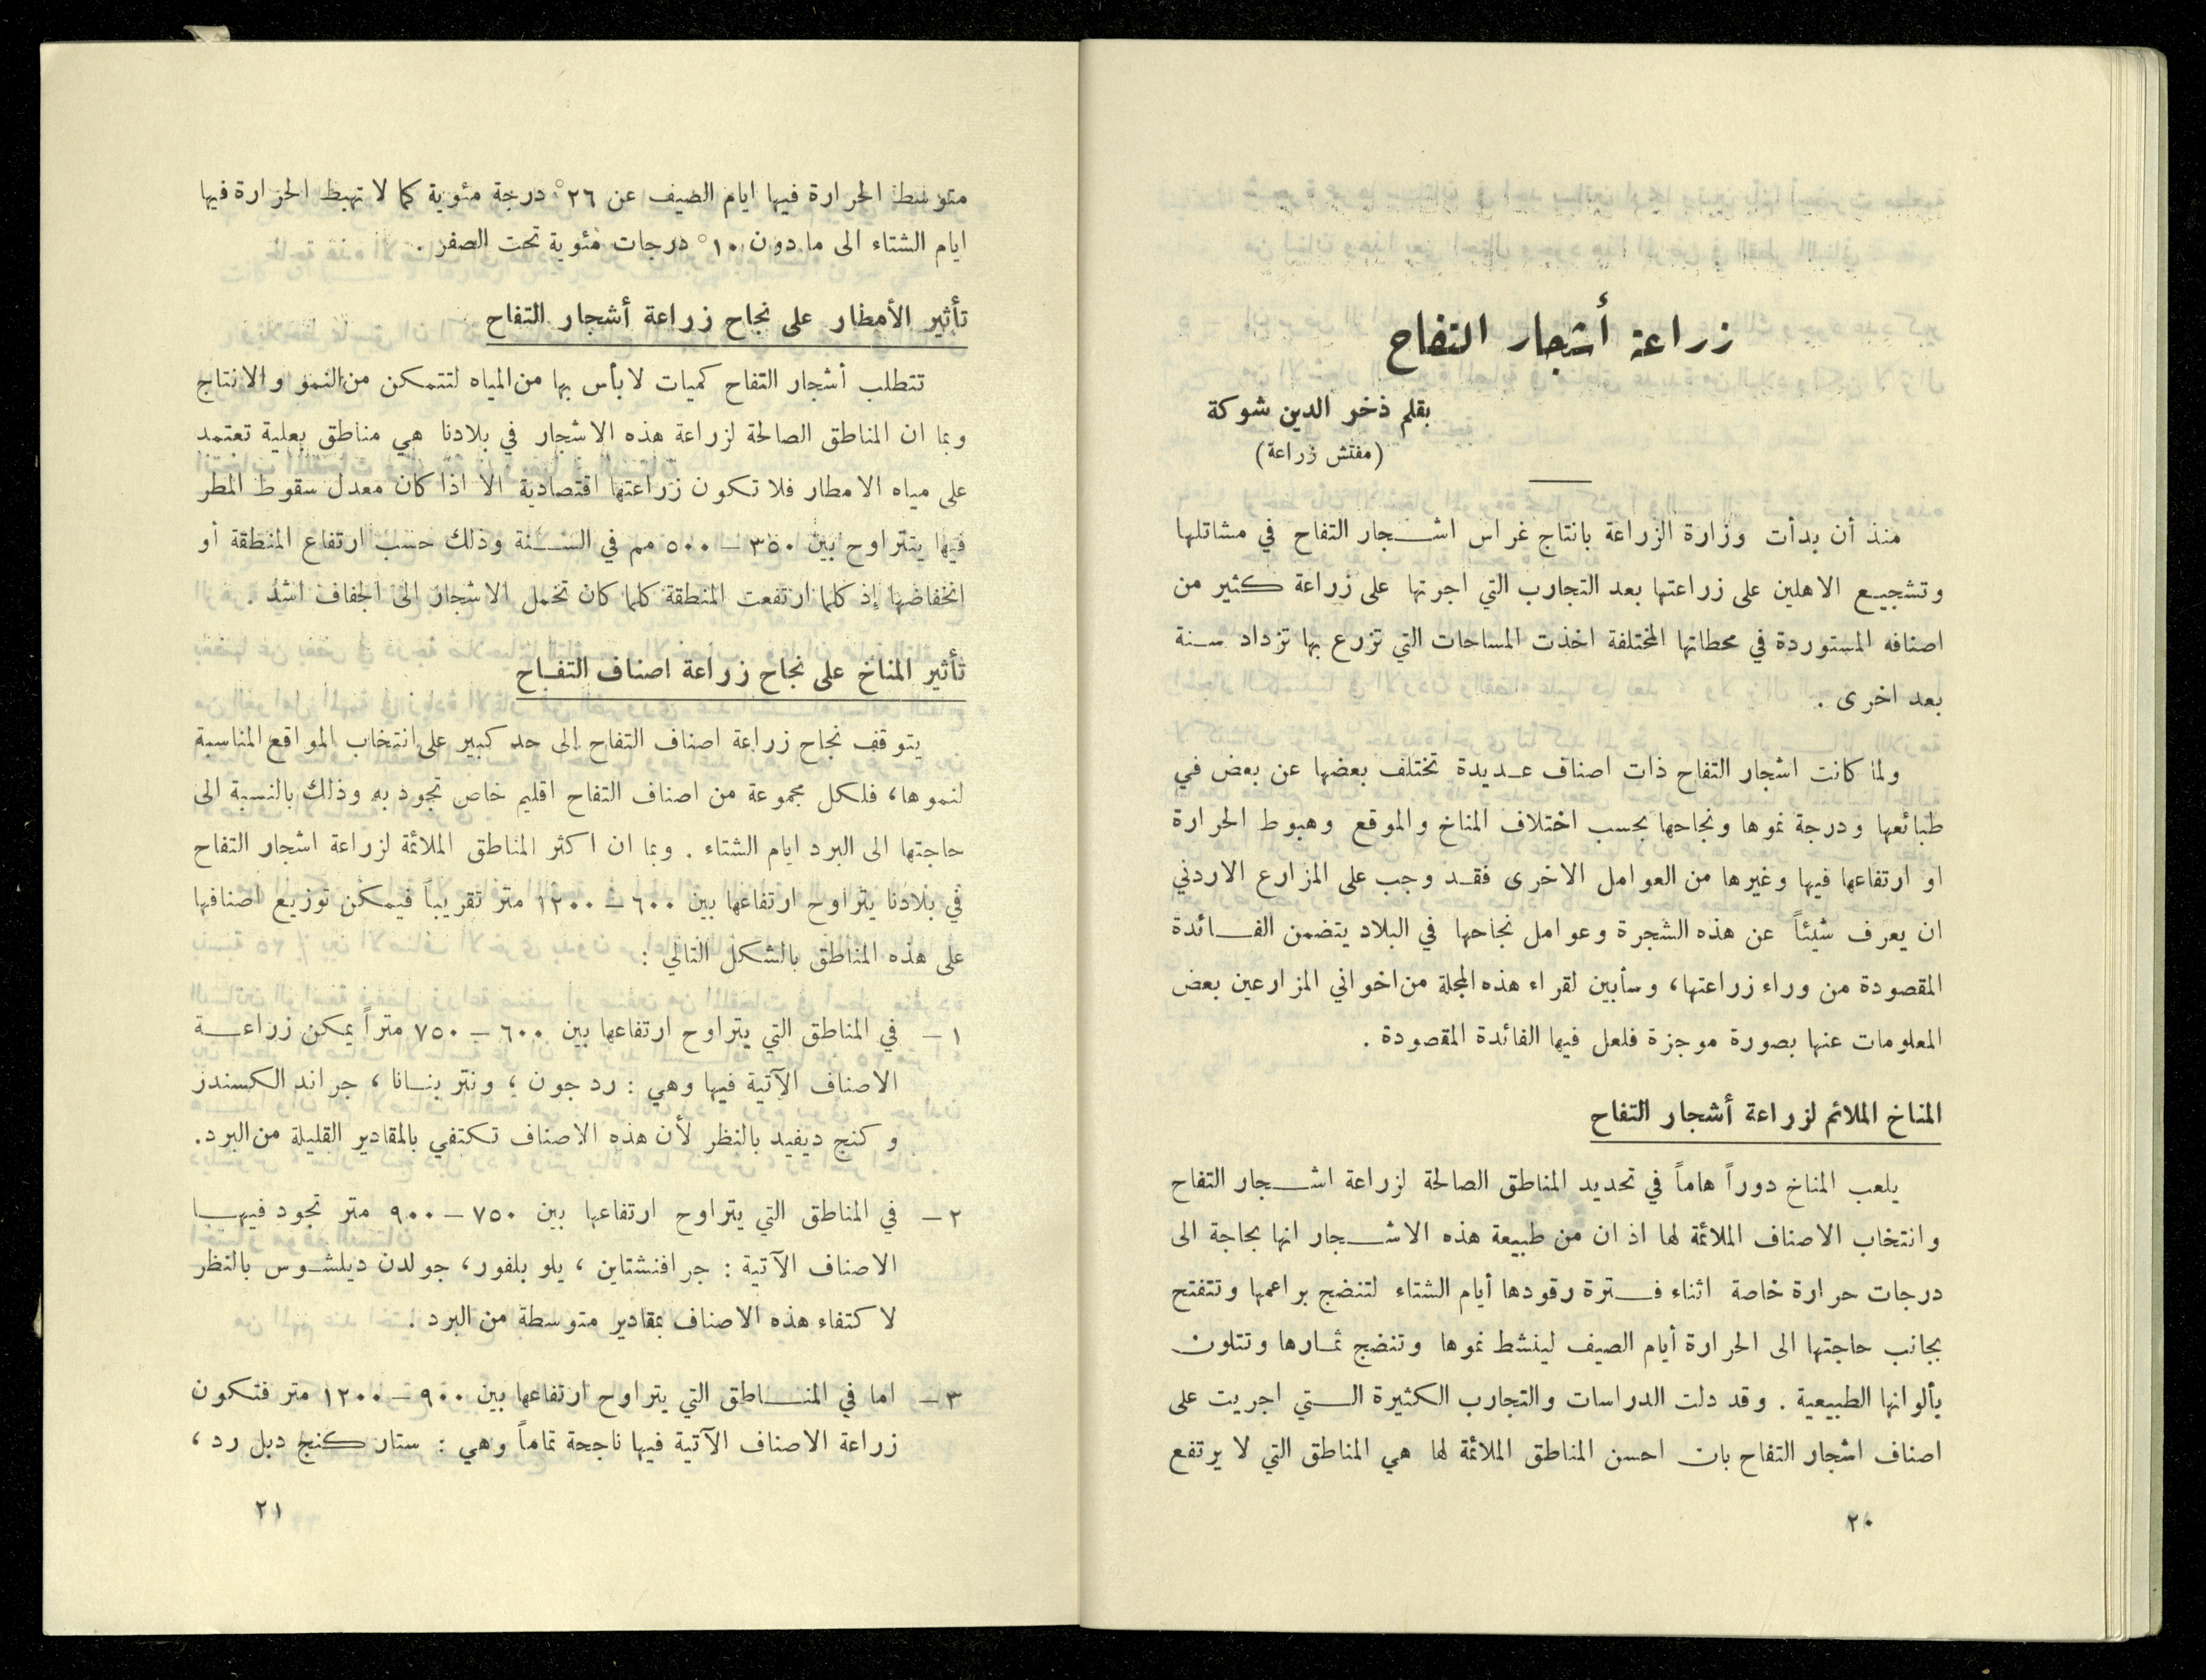 زراعة أشجار التفاح
بقلم ذخر الدين شوكة
(مفتش زراعة)
منذ أن بدأت وزارة الزراعة بانتاج غراس اشجار التفاح في مشاتلها
وتشجيع الاهلين على زراعتها بعد التجارب التي اجرتها على زراعة كثير من
اصنافه المستوردة في محطاتها المختلفة اخذت المساحات التي تزرع بها تزداد سنة
بعد اخرى .
ولما كانت اشجار التفاح ذات اصناف عديدة تختلف بعضها عن بعض في
طبائعها ودرجة نموها ونجاحها بحسب اختلاف المناخ والموقع وهبوط الحرارة
او ارتفاعها فيها وغيرها من العوامل الاخرى فقد وجب على المزارع الاردني
ان يعرف شيئاً عن هذه الشجرة وعوامل نجاحها في البلاد يتضمن الفائدة
المقصودة من وراء زراعتها، وسأبين لقراء هذه المجلة من اخواني المزارعين بعض
المعلومات عنها بصورة موجزة فلعل فيها الفائدة المقصودة .
المناخ الملائم لزراعة أشجار التفاح
يلعب المناخ دوراً هاماً في تحديد المناطق الصالحة لزراعة اشجار التفاح
وانتخاب الاصناف الملائمة لها اذ ان من طبيعة هذه الاشجار انها بحاجة الى
درجات حرارة خاصة اثناء فترة رقودها أيام الشتاء لتنضج براعمها وتتفتح
بجانب حاجتها الى الحرارة أيام الصيف لينشط نموها وتنضج ثمارها وتتلون
بألوانها الطبيعية . وقد دلت الدراسات والتجارب الكثيرة التي اجريت على
اصناف اشجار التفاح بان احسن المناطق الملائمة لها هي المناطق التي لا يرتفع
٢٠
متوسط الحرارة فيها ايام الصيف عن ٢٦° درجة مئوية كما لا تهبط الحرارة فيها
ايام الشتاء الى ما دون ١٠° درجات مئوية تحت الصفر .
تأثير الأمطار على نجاح زراعة أشجار التفاح
تتطلب أشجار التفاح كميات لا بأس بها من المياه لتتمكن من النمو والانتاج
وبما ان المناطق الصالحة لزراعة هذه الاشجار في بلادنا هي مناطق بعلية تعتمد
على مياه الامطار فلا تكون زراعتها اقتصادية الا اذا كان معدل سقوط المطر
فيها يتتراوح بين ٣٥٠ – ٥٠٠ مم في السنة وذلك حسب ارتفاع المنطقة أو
انخفاضها إذ كلما ارتفعت المنطقة كلما كان تحمل الاشجار الى الجفاف اشد .
تأثير المناخ على نجاح زراعة اصناف التفاح
يتوقف نجاح زراعة اصناف التفاح الى حد كبير على انتخاب المواقع المناسبة
لنموها، فلكل مجموعة من اصناف التفاح اقليم خاص تجود به وذلك بالنسبة الى
حاجتها الى البرد ايام الشتاء . وبما ان اكثر المناطق الملائمة لزراعة اشجار التفاح
في بلادنا يتراوح ارتفاعها بين ٦٠٠ – ١٢٠٠ متر تقريباً فيمكن توزيع اصنافها
على هذه المناطق بالشكل التالي :
١ – في المناطق التي يتراوح ارتفاعها بين ٦٠٠ – ٧٥٠ متراً يمكن زراعة
الاصناف الآتية فيها وهي : رد جون ، ونتر بنانا ، جراند الكسندر
وكنج ديفيد بالنظر لأن هذه الاصناف تكتفي بالمقادير القليلة من البرد.
٢ – في المناطق التي يتراوح ارتفاعها بين ٧٥٠ – ٩٠٠ متر تجود فيها
الاصناف الآتية : جرافنشتاين ، يلو بلفور، جولدن ديلشوس بالنظر
لاكتفاء هذه الاصناف بمقادير متوسطة من البرد .
٣ – اما في المناطق التي يتراوح ارتفاعها بين ٩٠٠ – ١٢٠٠ متر فتكون
زراعة الاصناف الآتية فيها ناجحة تماماً وهي : ستار كنج دبل رد ،
٢١